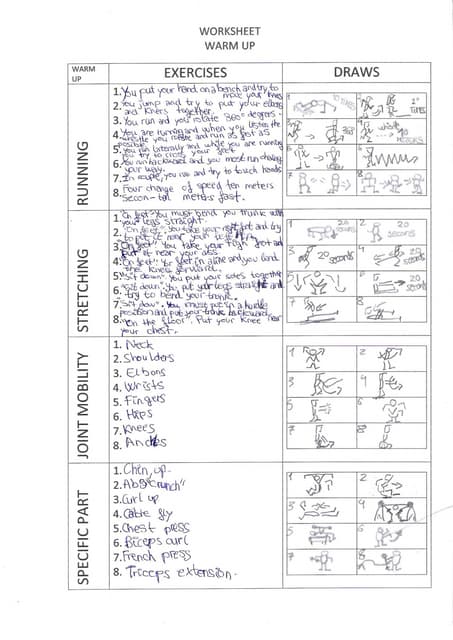 WORKSHEET
WARM UP
WARM UP
EXERCISES
DRAWS
RUNNING
1. You put your hand on a bench and try to
move your knees
2. You jump and try to put your elbows
and knees together.
3. You run and you rotate 360 degrees.
4. You are running and when you listen the
whistle you rotate and run as fest as
possible
5. You run literally and while you are running
you try to cross your feet
6. You run backward and you must run changing
your way.
7. In couple, you run and try to touch heads
8. Four change of speed ten meters
Secon-ten meters fast.
10 TIMES
10 TIMES
360
whistle
10 METERS
STRETCHING
1. "On feet" You must bend you trunk with
your legs straight.
2. "On feet" You take your foot and try
to put it near your
3. "On feet" You take your foot and
put it near your ass
4. "On feet" Yor feet in a line and you bend
the knee forward.
5. "Sit down" You put your soles together
6. "Sit down" You put your legs straight and
try to bend your trunk.
7. "Sit down". You must put in a hurdle
position and put your trunk backward
8. "On the floor". Put your knee near
your chest.
20 seconds
20 seconds
20 seconds
20 seconds
20 seconds
JOINT MOBILITY
1. Neck
2. Shoulders
3. Elbons
4. Wrists
5. Fingers
6. Hips
7. Knees
8. Ancles
SPECIFIC PART
1. Chin, up.
2. Abs "crunch"
3. Curl up
4. Cable fly
5. Chest press
6. Biceps curl
7. French press
8. Triceps extension.